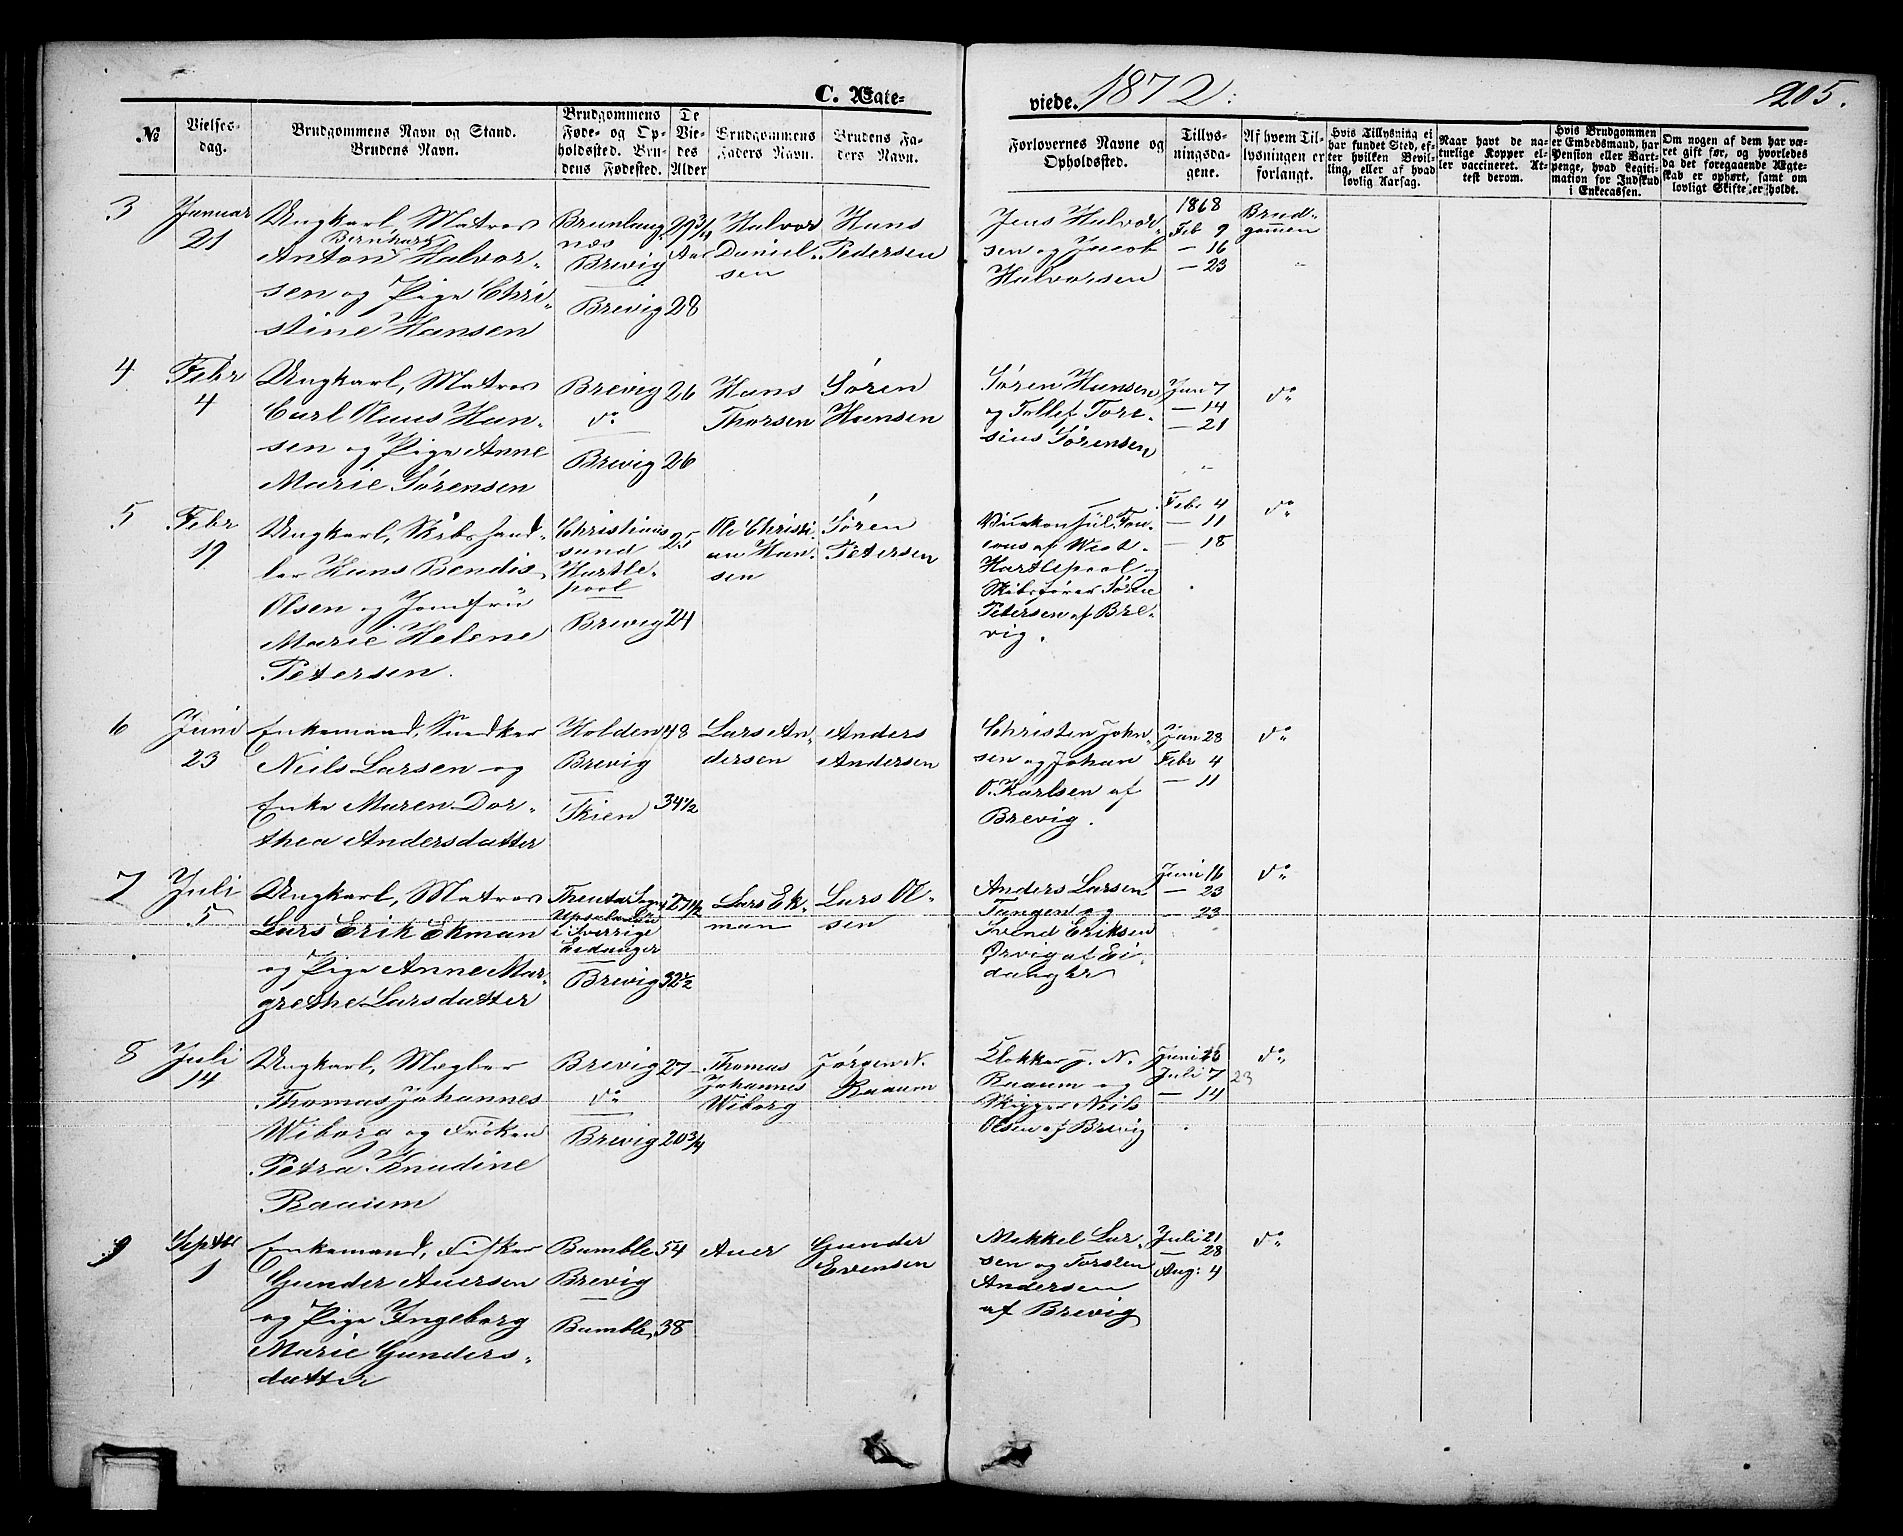 C. Ægte-
viede. 1872.
205.
№
Vielses-
dag.
Brudgommens Navn og Stand.
Brudens Navn.
Brudgommens
Føde- og Op-
holdssted. Bru-
dens Fødested.
De
Vie-
des
Alder
Brudgommens
Faders Navn.
Brudens Fa-
ders Navn.
Forlovernes Navne og
Opholdssted.
Tillys-
ningsda-
gene.
Af hvem Til-
lysningen er
forlangt.
Hvis Tillysning ei
har fundet Sted, ef-
ter hvilken Bevil-
ling, eller af hvad
lovlig Aarsag.
Naar havt de na-
turlige Kopper el-
ler vaccineret. At-
test derom.
Hvis Brudgommen
er Embedsmand, har
Pension eller Vart-
penge, hvad Legiti-
mation for Indskud
i Enkecassen.
Om nogen af dem har væ-
ret gift før, og hvorledes
da det foregaaende Ægte-
skab er ophørt, samt om
lovligt Skifte er holdt.
3
Januar
21
Ungkarl, Matros
Bernhard
Anton Halvor-
sen og Pige Chri-
stine Hansen
Brunlaug-
næs
Brevig
Brevig
29 3/4
Aar
28
Halvor
Daniel-
sen
Hans
Pedersen
Jens Halvor-
sen og Jacob
Halvorsen
1868
Feb 9
— 16
— 23
Brud-
gommen
4
Febr
4
Ungkarl, Matros
Carl Claus Han-
sen og Pige Anne
Marie Sørensen
Brevig
do
Brevig
26
26
Hans
Thorsen
Søren
Hansen
Søren Hansen
og Tollef Tore-
sius Sørensen
Jan 7
— 14
— 21
do
5
Febr
19
Ungkarl, Skibshand-
ler Hans Bendix
Olsen og Jomfrú
Marie Helene
Petersen.
Christians
sund
Hartle-
pool
Brevig
25
24
Ole Christi-
an Han-
sen
Søren
Petersen
Vicekonsúl
af West-
Hartlepool og
Skibsfører Sørne
Petersen af Bre-
vig.
Feb. 4
— 11
— 18
do
6
Juni
23
Enkemand, Snedker
Niels Larsen og
Enke Maren Dor-
thea Andersdatter
Holden
Brevig
Skien
48
34 1/2
Lars An-
dersen
Anders
Andersen
Christen John-
sen og Johan
O. Karlsen af
Brevig.
Jan 28
Febr 4
— 11
do
7
Juli
5
Ungkarl, Matros
Lars Erik Ekman
og Pige Anne Mar-
grethe Larsdatter
Upsala Len
i Sverrige
Eidanger
Brevig
27 1/2
32 1/2
Lars Ek-
man
Lars Ol-
sen
Anders Larsen
Tangen og
Svend Eriksen
Ørvig af Ei-
danger
Juni 16
— 23
— 23
do
8
Juli
14
Ungkarl, Mægler
Thomas Johannes
Wiborg og Frøken
Petra Knudine
Raaum
Brevig
do
Brevig
27
20 3/4
Thomas
Johannes
Wiborg
Jørgen N.
Raaum
Klokker J. N.
Raaum og
Skipper Niels
Olsen af Brevig
Juni
Juli 7
— 14
23
do
9
Septbr
1
Enkemand, Fisker
Gunder Auersen
og Pige Ingeborg
Marie Gunders-
datter
Bamble
Brevig
Bamble
54
38
Auer
Gunder
Evensen
Mekkel Lar-
sen og Torsten
Andersen
af Brevig
Juli 21
— 28
Aug: 4
do